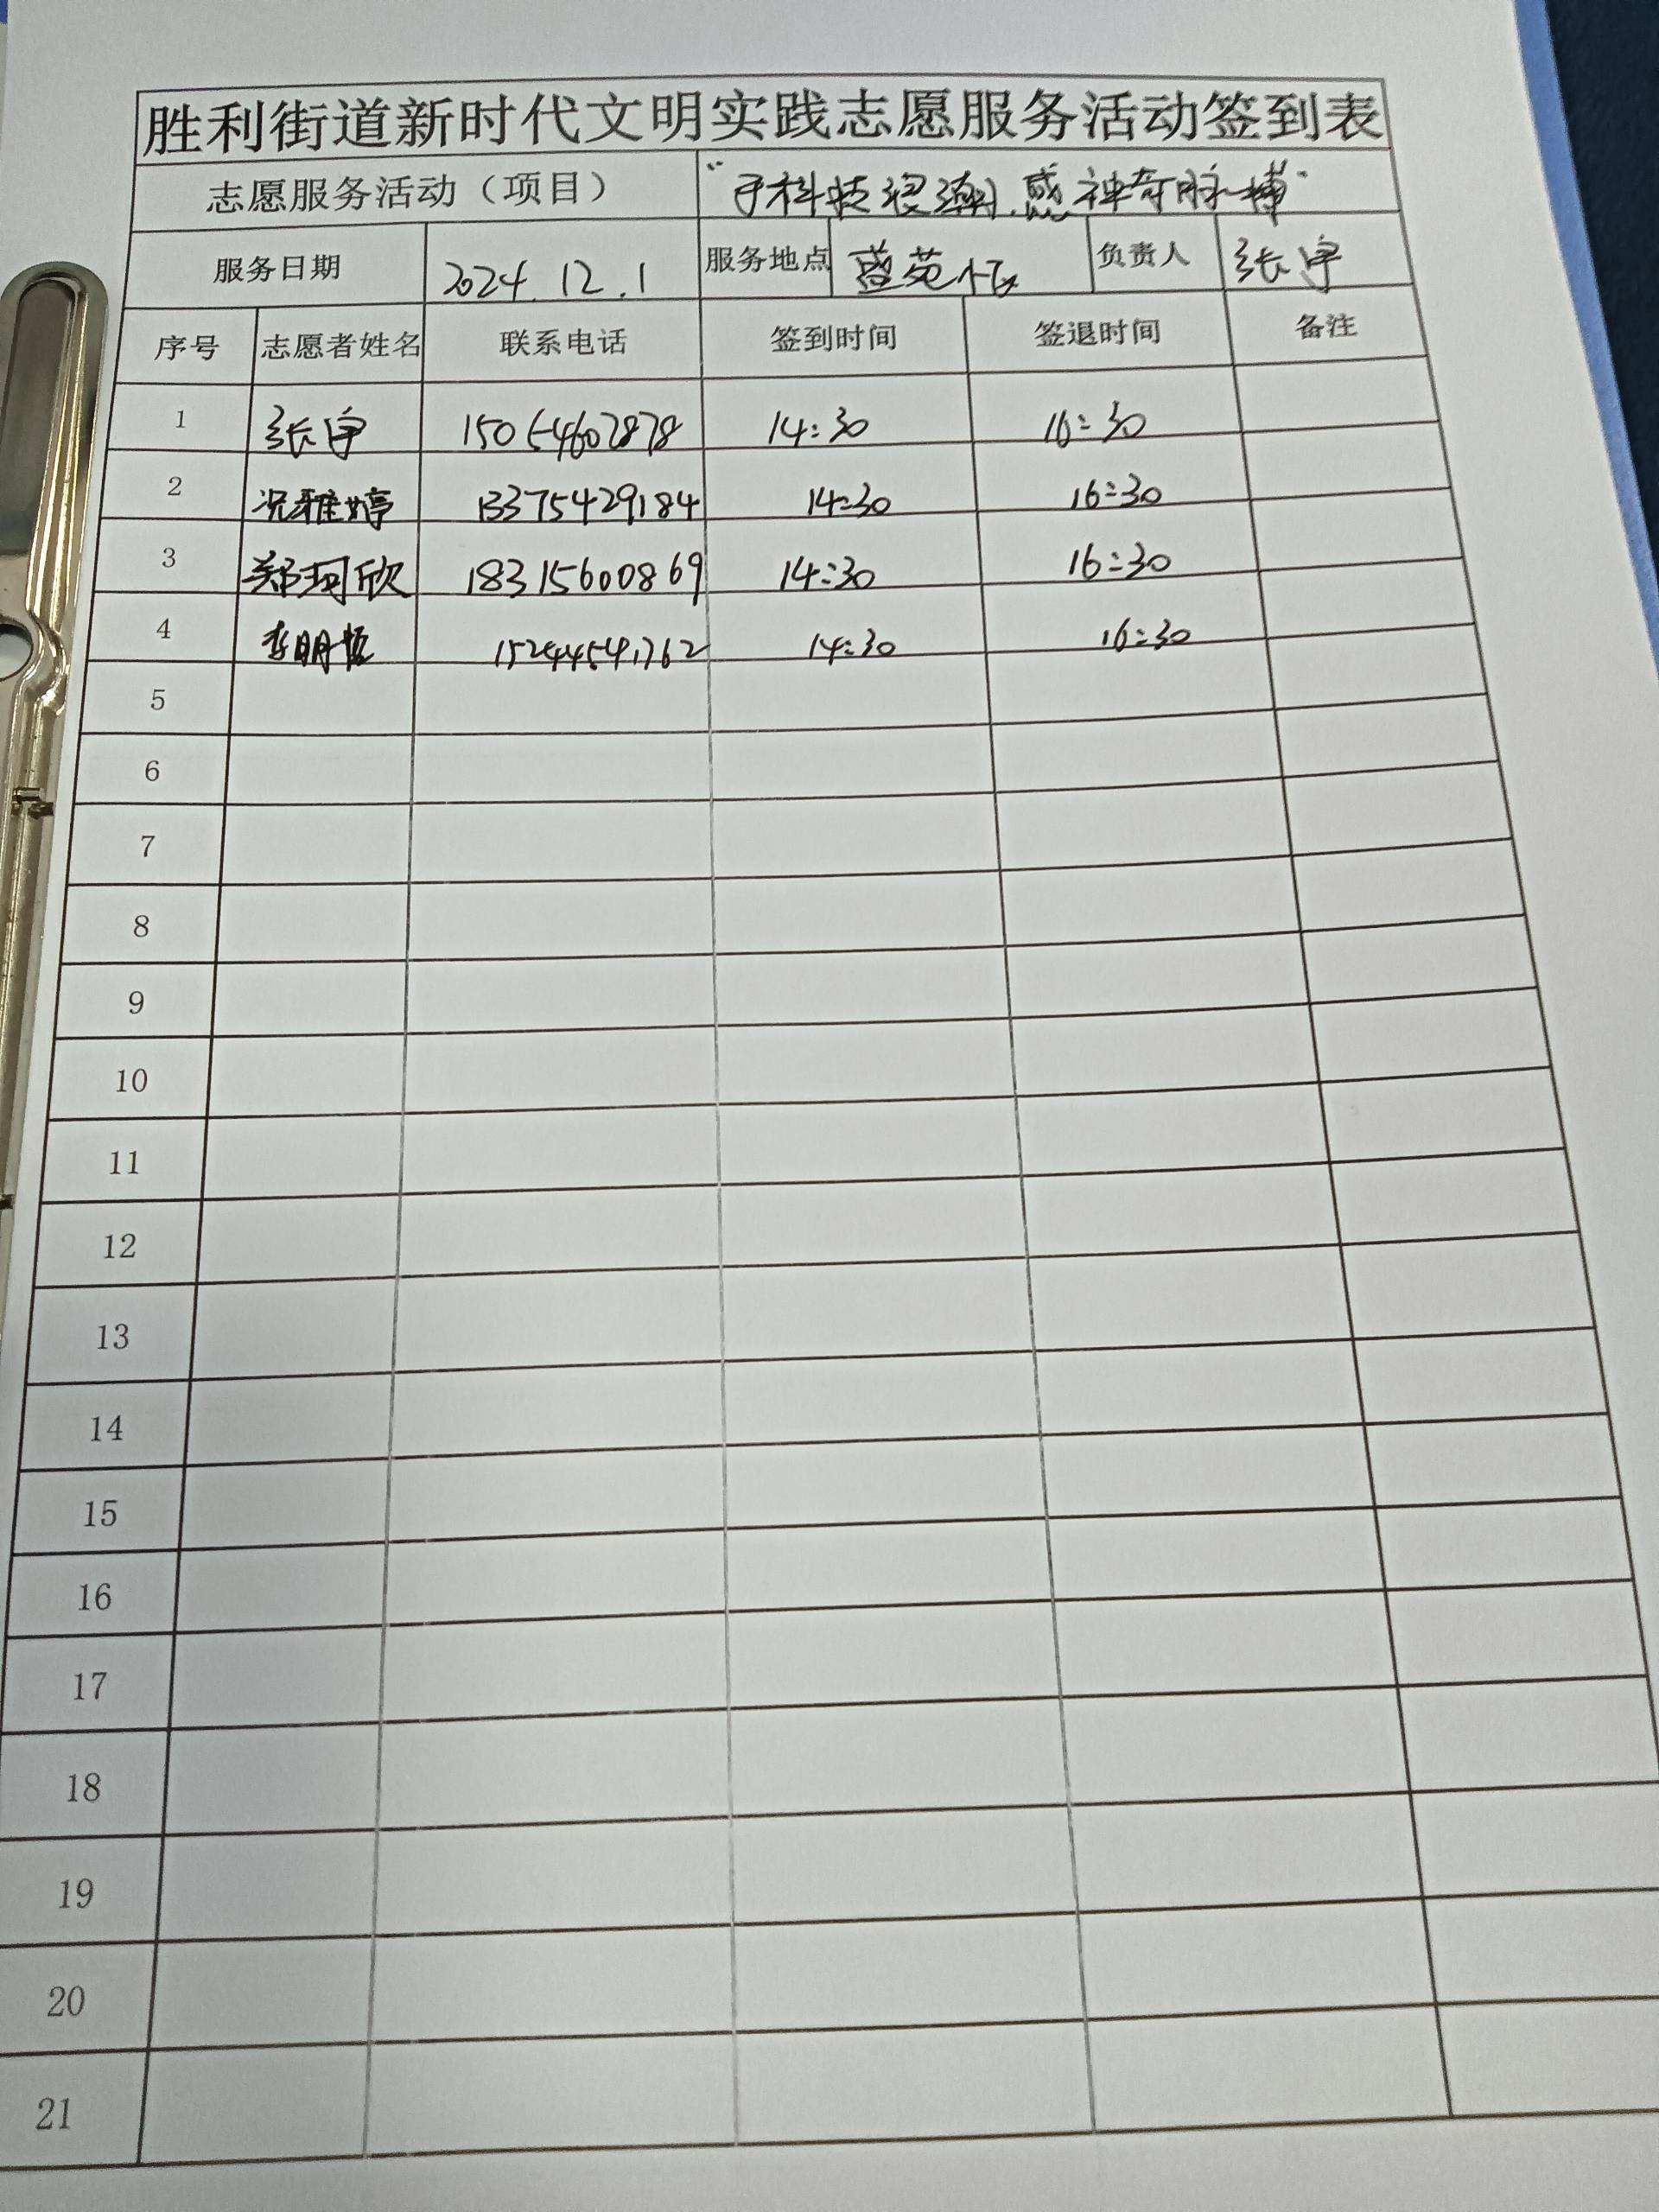 胜利街道新时代文明实践志愿服务活动签到表
志愿服务活动（项目） "于科技浸潮、感神奇脉搏"
服务日期 2024.12.1 服务地点 盛苑 负责人 张宇
序号 志愿者姓名 联系电话 签到时间 签退时间 备注
1 张宇 15054607878 14:30 16:30
2 况雅婷 13375429184 14:30 16:30
3 郑珂欣 18315600869 14:30 16:30
4 李明 15244541762 14:30 16:30
5
6
7
8
9
10
11
12
13
14
15
16
17
18
19
20
21